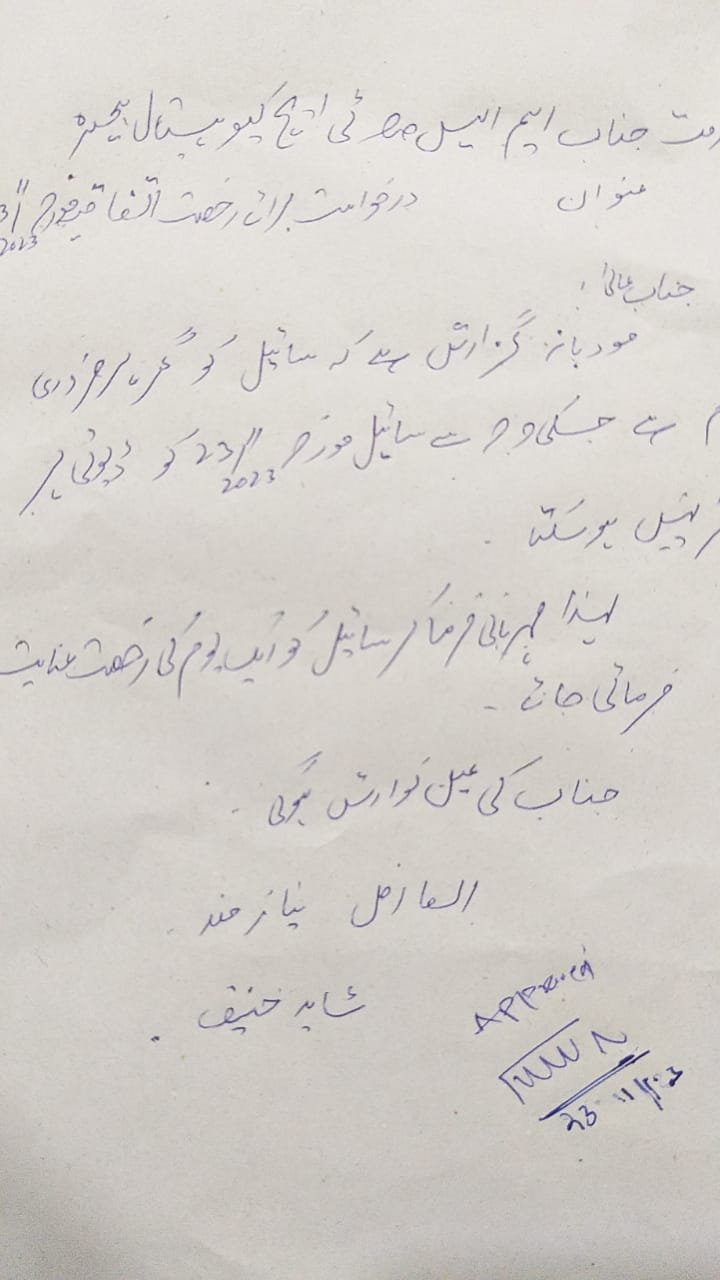 خدمت جناب ایم ایس صاحب ٹی ایچ کیو ہسپتال بھیرہ
عنوان درخواست برائے رخصت اتفاقیہ مورخہ 23/11 2023
جناب عالی!
مودبانہ گزارش ہے کہ سائیل کو گھر پر ضروری
کام ہے جسکی وجہ سے سائیل مورخہ 23/11 2023 کو ڈیوٹی پر
حاضر نہیں ہو سکتا۔
لہذا مہربانی فرما کر سائیل کو ایک یوم کی رخصت عنایت
فرمائی جائے۔
جناب کی عین نوازش ہوگی۔
العارض نیاز مند
شاہد حنیف۔
Approved
23/11/23